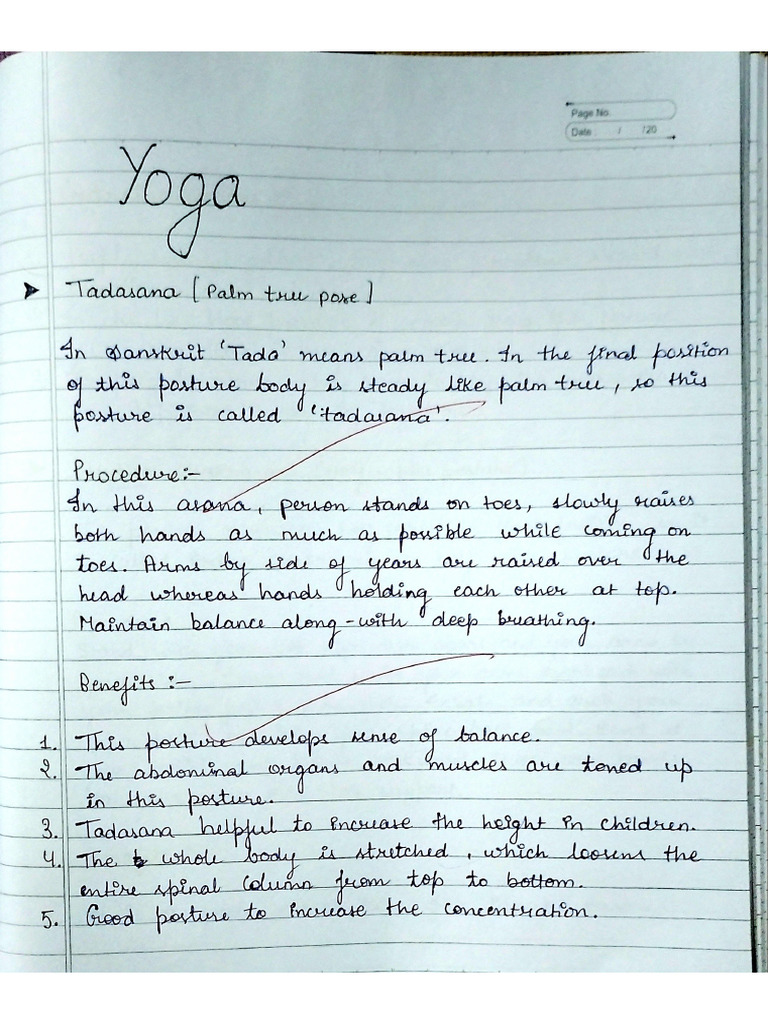 Page No.
Date : / /20
Yoga
➤ Tadasana [Palm tree pose]
In Sanskrit 'Tada' means palm tree. In the final position
of this posture body is steady like palm tree, so this
posture is called 'tadasana'.
Procedure:-
In this asana, person stands on toes, slowly raises
both hands as much as possible while coming on
toes. Arms by side of years are raised over the
head whereas hands holding each other at top.
Maintain balance along-with deep breathing.
Benefits :-
1. This posture develops sense of balance.
2. The abdominal organs and muscles are toned up
in this posture.
3. Tadasana helpful to increase the height in children.
4. The whole body is stretched, which loosens the
entire spinal column from top to bottom.
5. Good posture to increase the concentration.